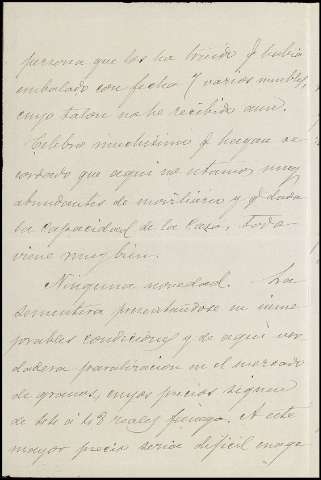 persona que los ha traido q. habia
embalado con fecha 7 varios muebles,
cuyo talon no he recibido aun.
Celebro muchisimo q. hayan re-
cordado que aqui no estamos muy
abundantes de moviliario y q. dada
la capacidad de la casa, todo
viene muy bien.
Ninguna novedad. La
sementera presentandose en inme-
jorables condiciones y de aqui ver-
dadera paralizacion en el mercado
de granos, cuyos precios siguen
de á 48 reales fanega. A este
mayor precio seria dificil enage